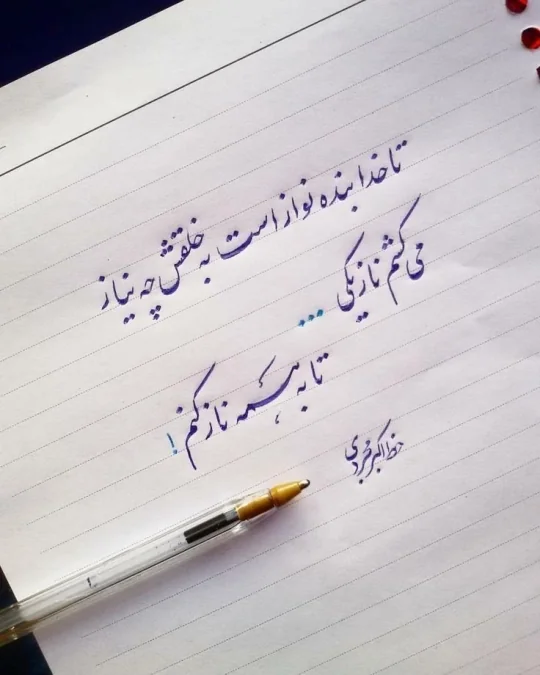 تا خدا بنده نواز است به خلقش چه نیاز
می کشم ناز یکی ...
تا به همه ناز کنم !
خط اکبر مجردی